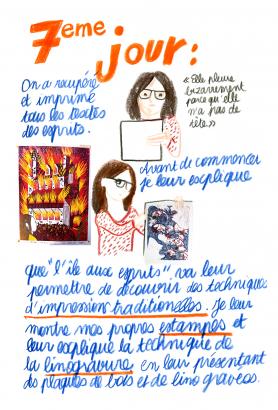 7eme
jour :
On a recupéré
et imprimé
tous les textes
des esprits.
« Elle pleure
bizarrement
parce qu'elle
n'a pas de
tête. »
Avant de commencer
je leur explique
que "l'île aux esprits" va leur
permettre de découvrir des techniques
d'impression traditionelles. Je leur
montre mes propres estampes et
leur explique la technique de
la linogravure, en leur présentant
des plaques de bois et de lino gravées.